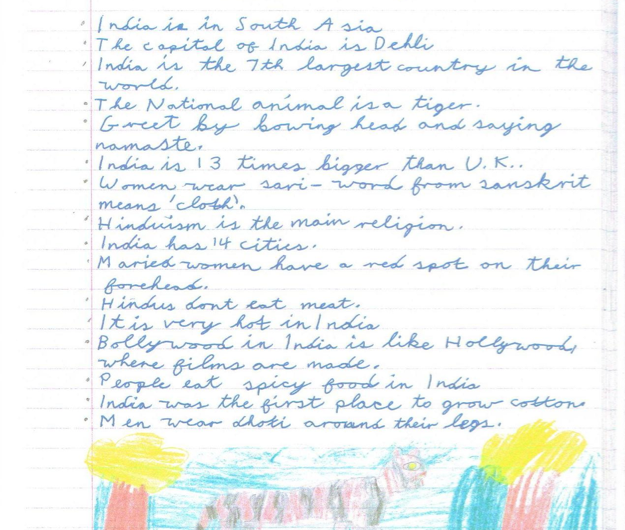 • India is in South Asia
• The capital of India is Dehli
• India is the 7th largest country in the
world.
• The National animal is a tiger.
• Greet by bowing head and saying
namaste.
• India is 13 times bigger than U.K..
• Women wear sari - word from sanskrit
means 'cloth'.
• Hinduism is the main religion.
• India has 14 cities.
• Maried women have a red spot on their
forehead.
• Hindus dont eat meat.
• It is very hot in India
• Bollywood in India is like Hollywood,
where films are made.
• People eat spicy food in India
• India was the first place to grow cotton.
• Men wear dhoti around their legs.